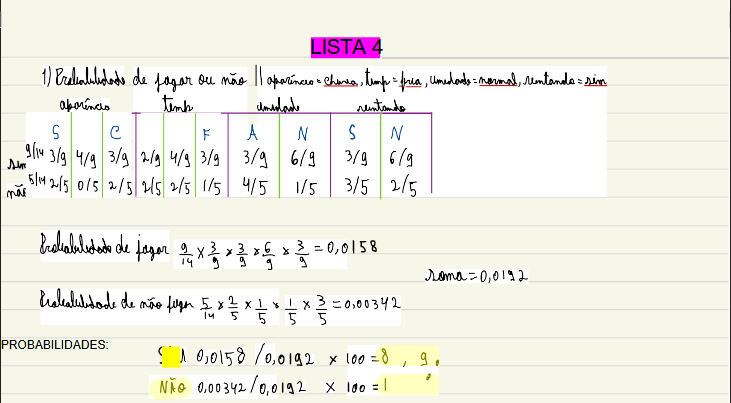 LISTA 4
1) Probabilidade de jogar ou não || aparência = chuva, temp = fria, umidade = normal, ventando = sim
aparência temp umidade ventando
S C F A N S N
sim 9/14 3/9 4/9 3/9 2/9 4/9 3/9 3/9 6/9 3/9 6/9
não 5/14 2/5 0/5 2/5 2/5 2/5 1/5 4/5 1/5 3/5 2/5
Probabilidade de jogar 9/14 x 3/9 x 3/9 x 6/9 x 3/9 = 0,0158
soma = 0,0192
Probabilidade de não jogar 5/14 x 2/5 x 1/5 x 1/5 x 3/5 = 0,00342
PROBABILIDADES:
0,0158 / 0,0192 x 100 = 8 , 9
NÃO 0,00342 / 0,0192 x 100 = 1